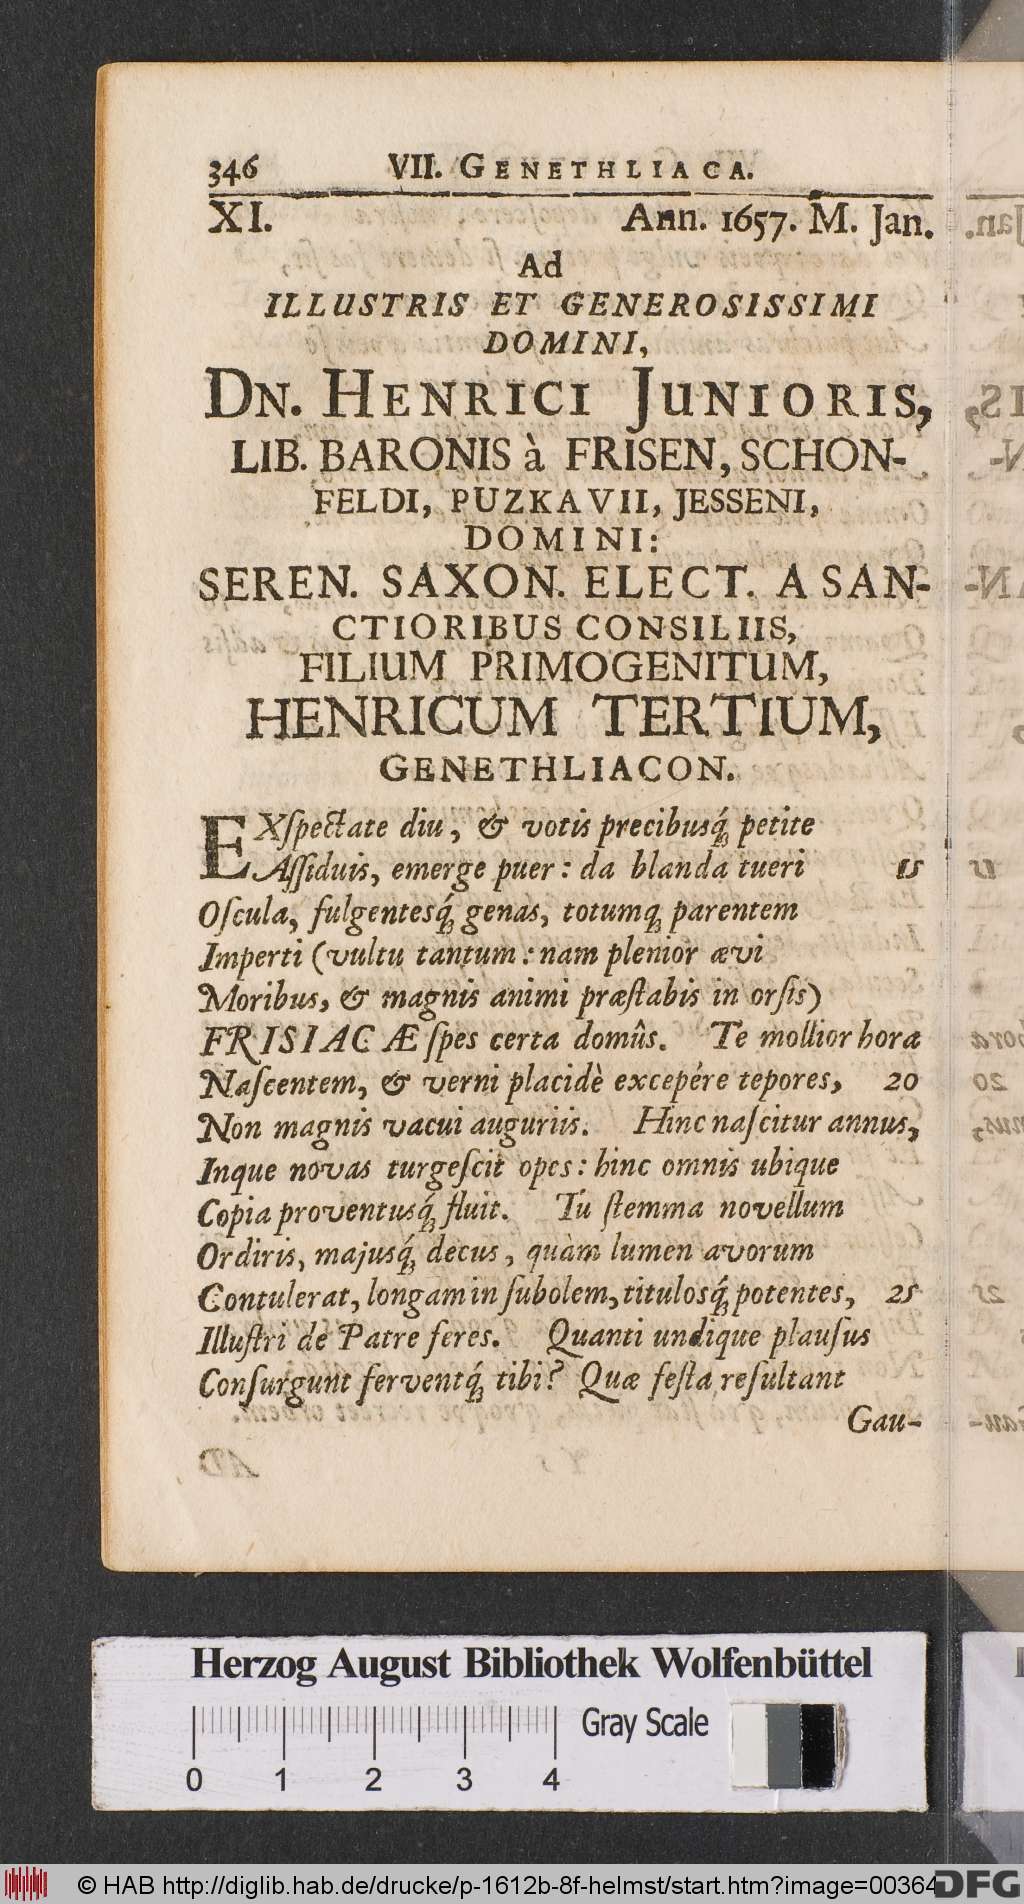 346 VII. GENETHLIACA.
XI. Ann. 1657. M. Jan.
Ad
ILLUSTRIS ET GENEROSISSIMI
DOMINI,
DN. HENRICI JUNIORIS,
LIB. BARONIS à FRISEN, SCHON-
FELDI, PUZKAVII, JESSENI,
DOMINI:
SEREN. SAXON. ELECT. A SAN-
CTIORIBUS CONSILIIS,
FILIUM PRIMOGENITUM,
HENRICUM TERTIUM,
GENETHLIACON.
EXſpectate diu, & votis precibusq́; petite
Aſſiduis, emerge puer: da blanda tueri 15
Oſcula, fulgentesq́; genas, totumq; parentem
Imperti (vultu tantum: nam plenior ævi
Moribus, & magnis animi præſtabis in orſis)
FRISIACÆ ſpes certa domûs. Te mollior hora
Naſcentem, & verni placidè excepére tepores, 20
Non magnis vacui auguriis. Hinc naſcitur annus,
Inque novas turgeſcit opes: hinc omnis ubique
Copia proventusq́; fluit. Tu ſtemma novellum
Ordiris, majusq́; decus, quàm lumen avorum
Contulerat, longam in ſubolem, titulosq́; potentes, 25
Illuſtri de Patre feres. Quanti undique plauſus
Conſurgunt ferventq́; tibi? Quæ feſta reſultant
Gau-
Herzog August Bibliothek Wolfenbüttel
Gray Scale
0 1 2 3 4
© HAB http://diglib.hab.de/drucke/p-1612b-8f-helmst/start.htm?image=00364
DFG